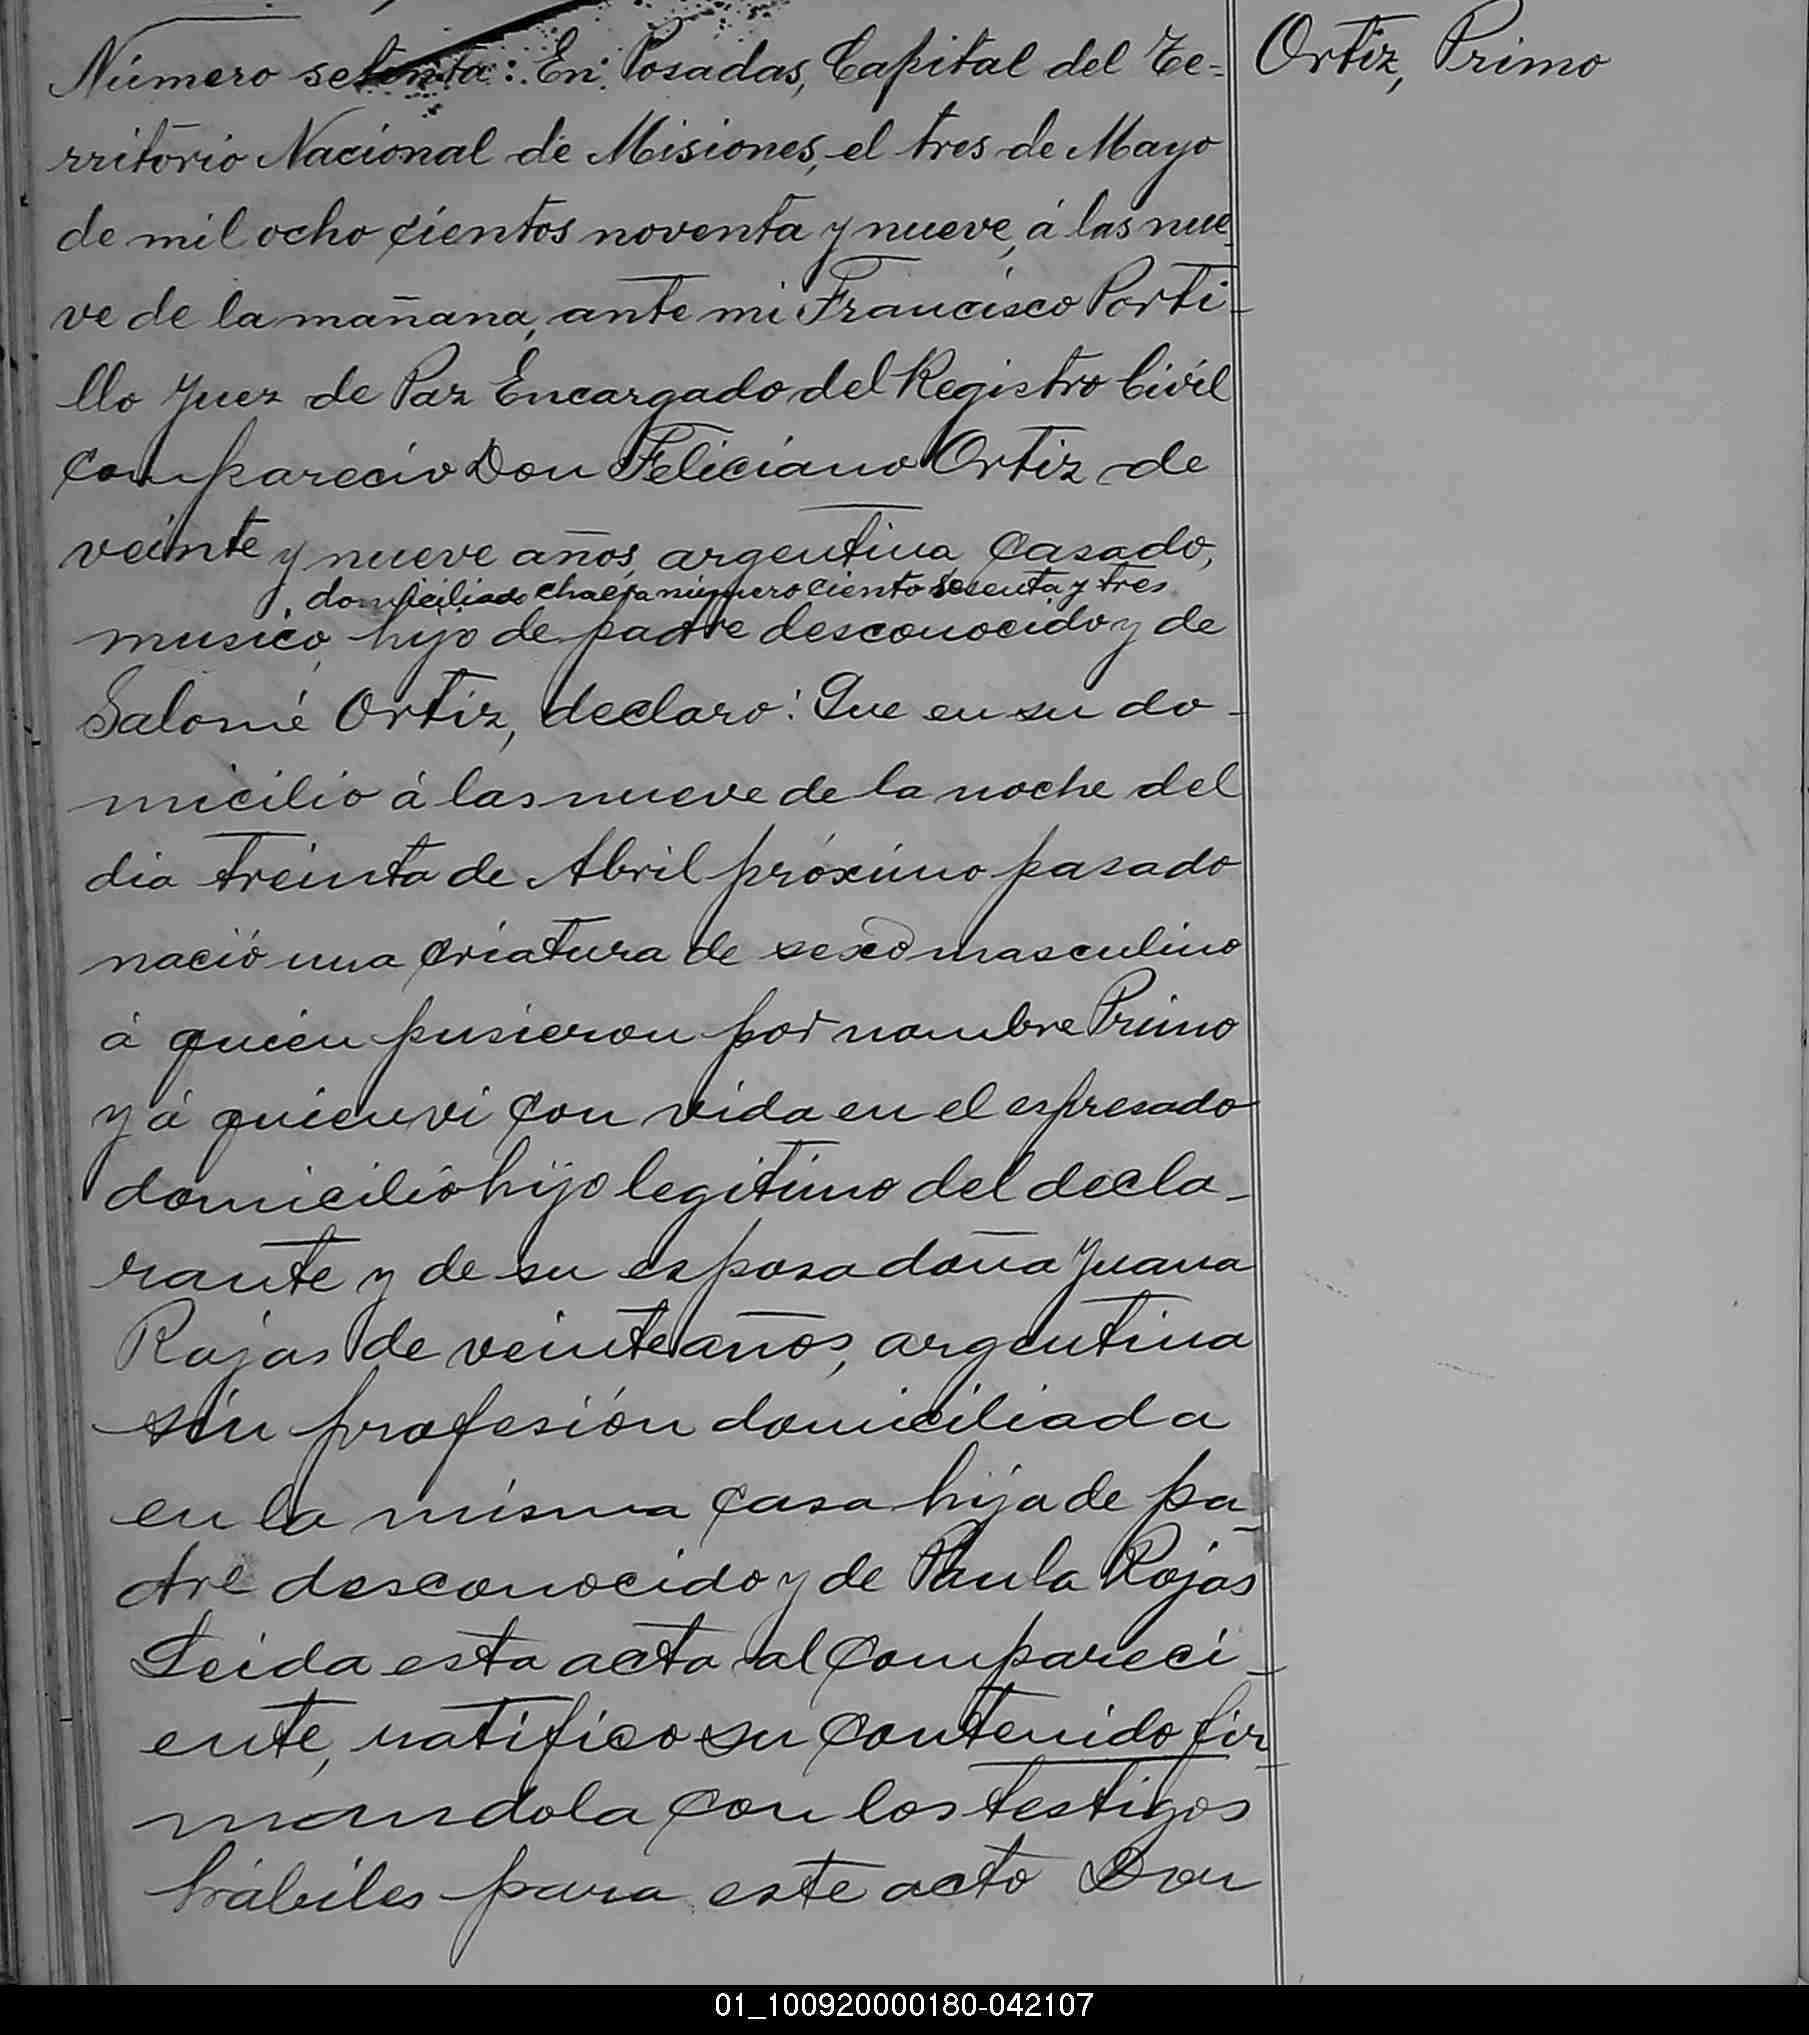 Número setenta: En Posadas, Capital del Te=
rritorio Nacional de Misiones, el tres de Mayo
de mil ocho cientos noventa y nueve, á las nue_
ve de la mañana, ante mi Francisco Porti-
llo Juez de Paz Encargado del Registro Civil
compareció Don Feliciano Ortiz de
veinte y nueve años, argentino, casado,
, domiciliado chacra número ciento sesenta y tres
musico, hijo de padre desconocido y de
Salomé Ortiz, declaro: Que en su do-
micilio á las nueve de la noche del
dia treinta de Abril próximo pasado
nació una criatura de sexo masculino
á quien pusieron por nombre Primo
y á quien vi con vida en el espresado
domicilio hijo legitimo del decla-
rante y de su esposa doña Juana
Rojas de veinte años, argentina
sin profesión domiciliada
en la misma casa hija de pa_
dre desconocido y de Paula Rojas
Leida esta acta al compareci-
ente, ratifico su contenido fir_
mandola con los testigos
hábiles para este acto Don
Ortiz, Primo
01_100920000180-042107